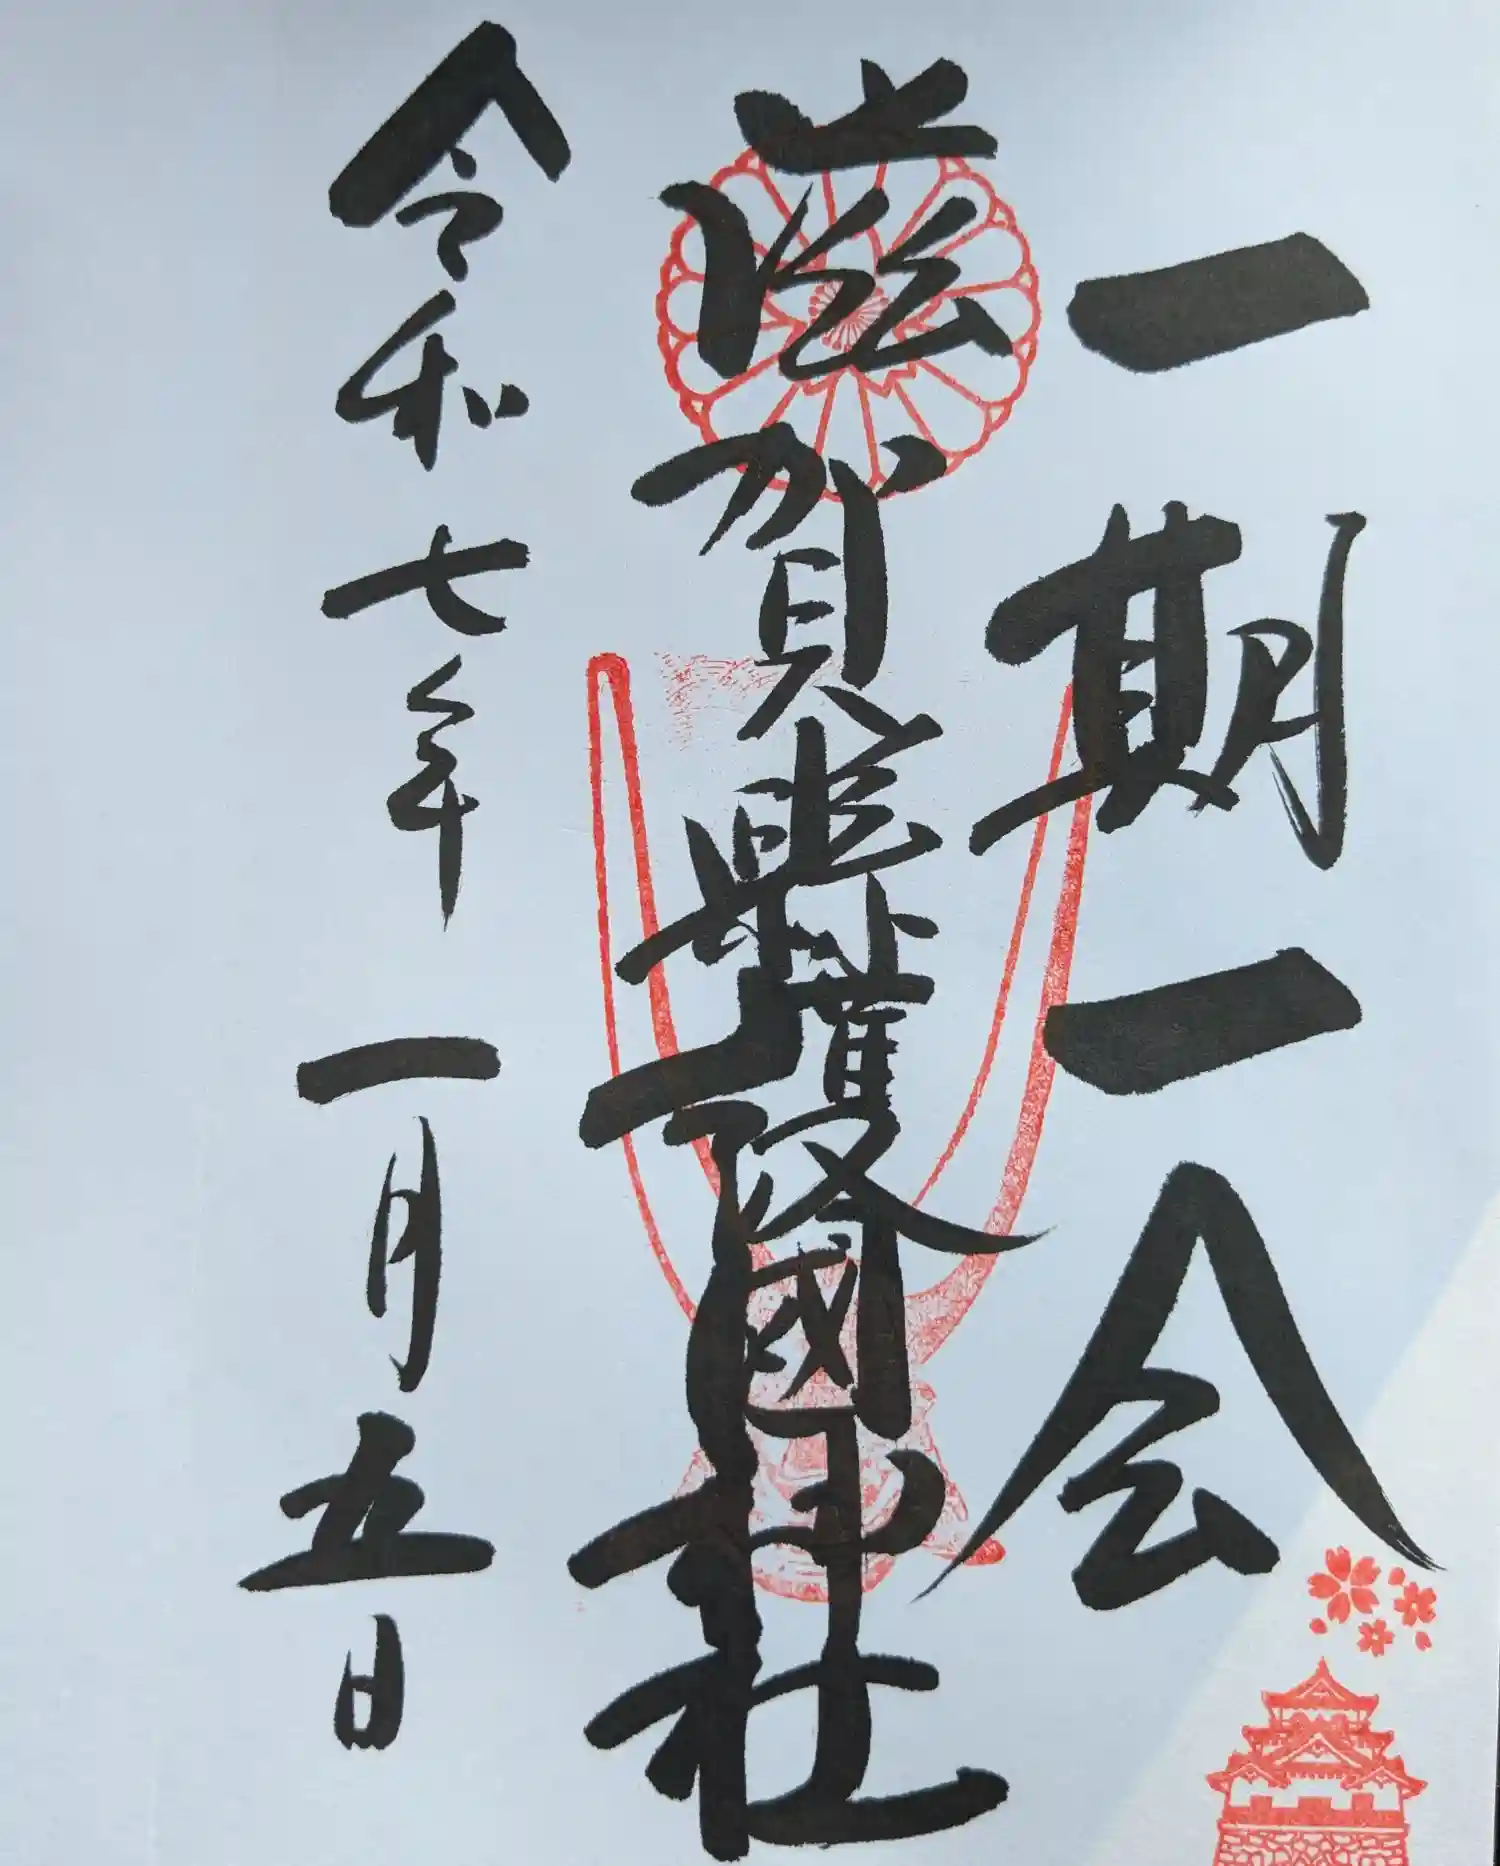 一期一会
滋賀縣護國神社
令和七年一月五日